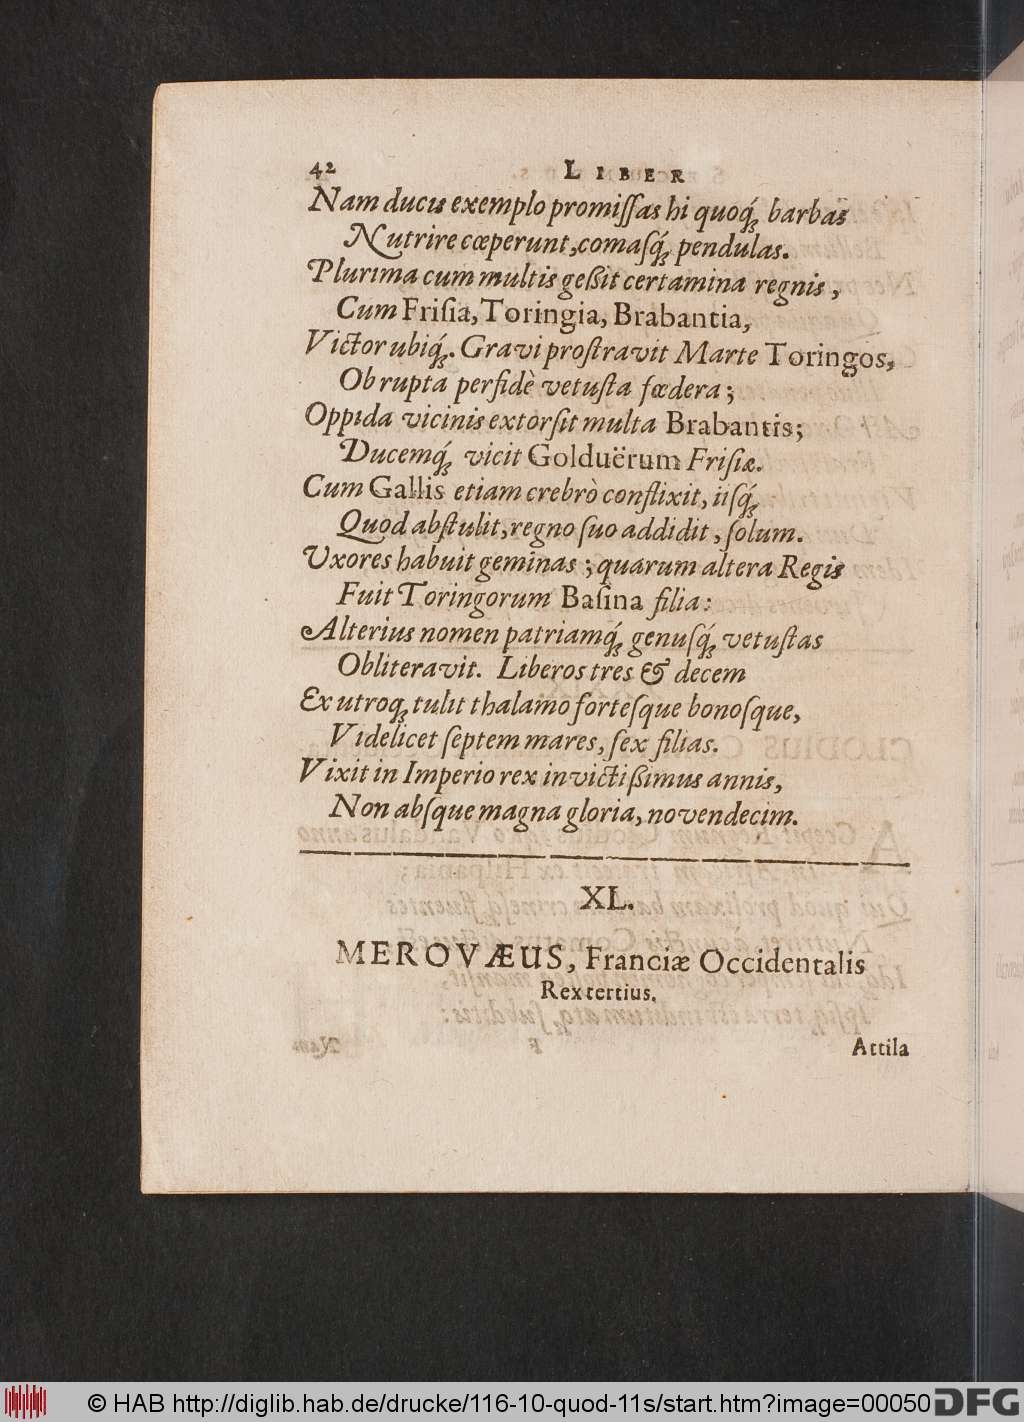 42 LIBER
Nam ducis exemplo promiſſas hi quoq́ꝫ barbas
Nutrire cœperunt, comaſq́ꝫ pendulas.
Plurima cum multis geßit certamina regnis,
Cum Friſia, Toringia, Brabantia,
Victor ubiq́ꝫ. Gravi proſtravit Marte Toringos,
Ob rupta perfidè vetuſta fœdera;
Oppida vicinis extorſit multa Brabantis;
Ducemq́ꝫ vicit Golduërum Friſiæ.
Cum Gallis etiam crebrò conflixit, iiſq́ꝫ
Quod abſtulit, regno ſuo addidit, ſolum.
Vxores habuit geminas; quarum altera Regis
Fuit Toringorum Baſina filia:
Alterius nomen patriamq́ꝫ genuſq́ꝫ vetuſtas
Obliteravit. Liberos tres & decem
Ex utroqꝫ tulit thalamo forteſque bonoſque,
Videlicet ſeptem mares, ſex filias.
Vixit in Imperio rex invictißimus annis,
Non abſque magna gloria, novendecim.
XL.
MEROVÆUS, Franciæ Occidentalis
Rex tertius.
Attila
© HAB http://diglib.hab.de/drucke/116-10-quod-11s/start.htm?image=00050 DFG